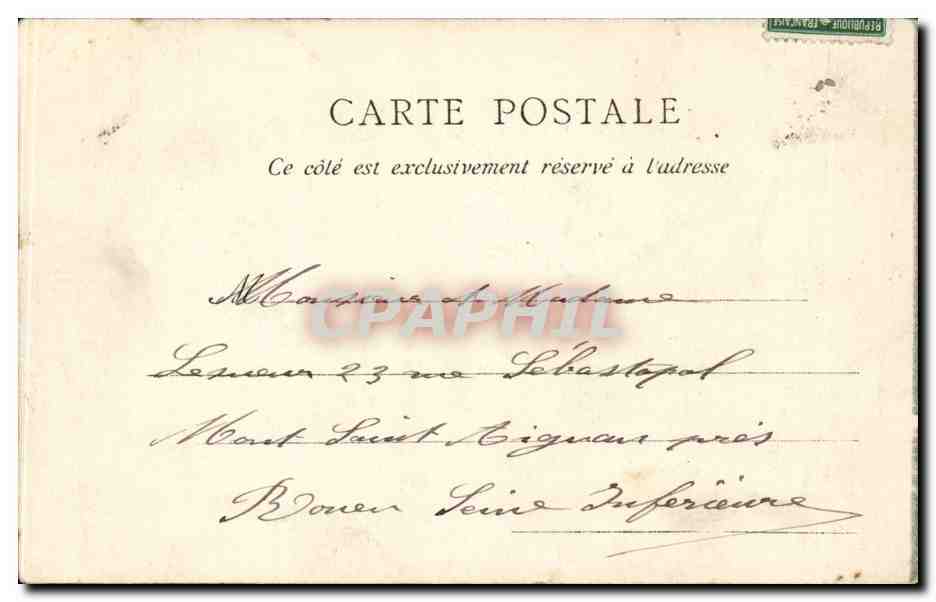 RÉPUBLIQUE FRANÇAISE
CARTE POSTALE
Ce côté est exclusivement réservé à l'adresse
Monsieur et Madame
CPAPHIL
Lesueur 23 rue Sébastopol
Mont Saint Aignan près
Rouen Seine Inférieure